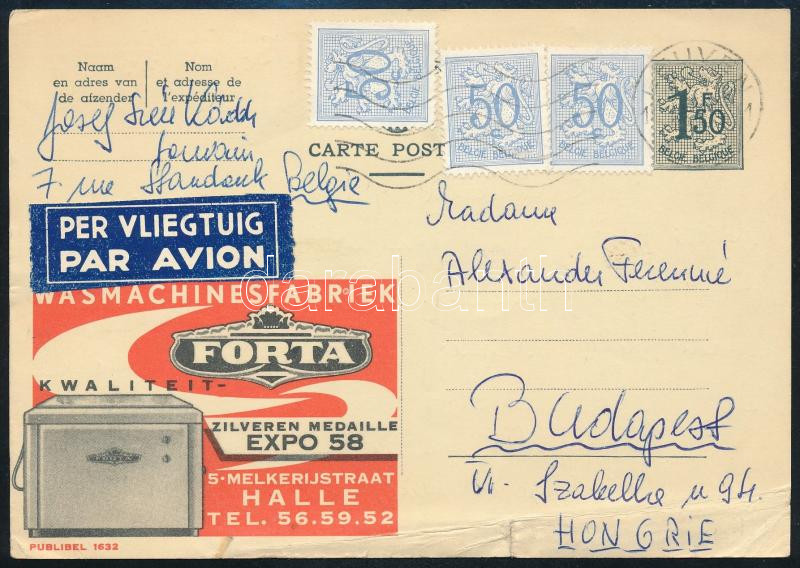 Naam en adres van de afzender
Nom et adresse de l'expéditeur
50 c
BELGIE-BELGIQUE
50 c
BELGIE-BELGIQUE
50 c
BELGIE-BELGIQUE
1 F 50
BELGIE-BELGIQUE
CARTE POST
Josef
Louvain
7 rue Belgie
PER VLIEGTUIG
PAR AVION
WASMACHINESFABRIEK
FORTA
KWALITEIT-
ZILVEREN MEDAILLE
EXPO 58
FORTA
5-MELKERIJSTRAAT
HALLE
TEL. 56.59.52
PUBLIBEL 1632
Madame
Alexander Ferenné
Budapest
VI. Izabella u 94.
HONGRIE
darabanth